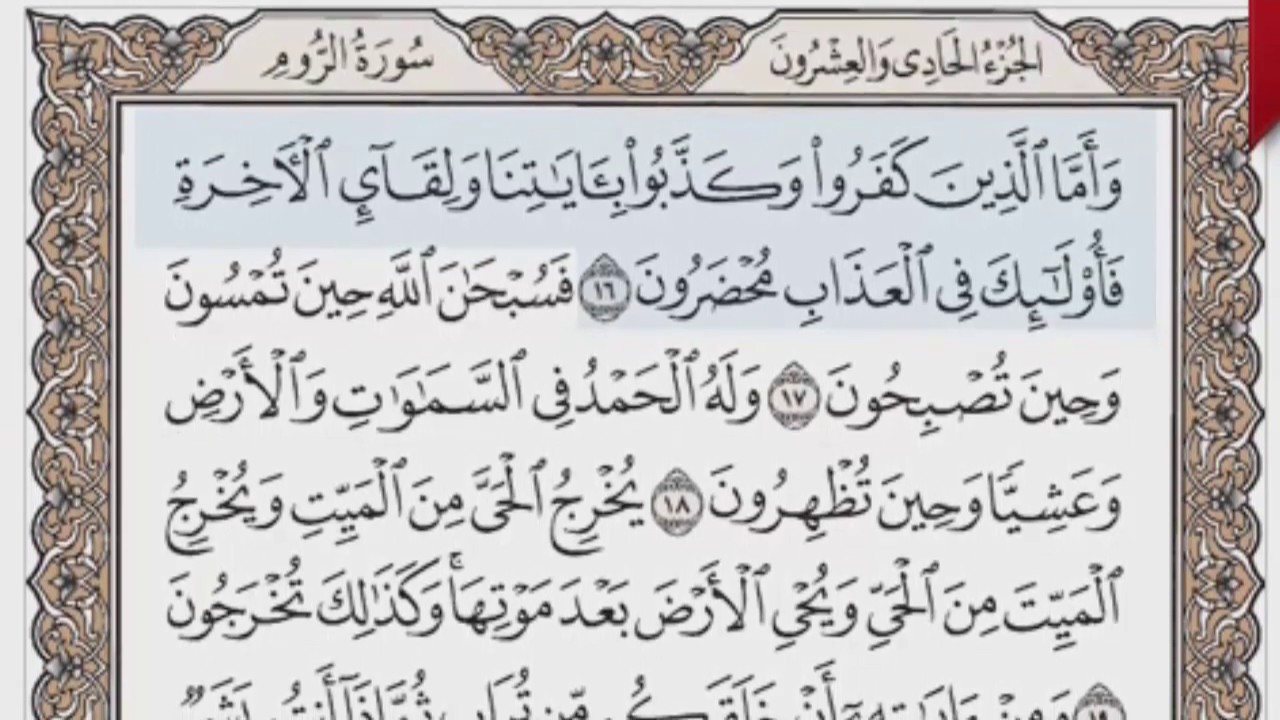 الجُزْءُ الحَادِى وَالعِشْرُونَ
سُورَةُ الرُّومِ
وَأَمَّا ٱلَّذِينَ كَفَرُوا۟ وَكَذَّبُوا۟ بِـَٔايَـٰتِنَا وَلِقَآئِ ٱلْـَٔاخِرَةِ
فَأُو۟لَـٰٓئِكَ فِى ٱلْعَذَابِ مُحْضَرُونَ ١٦ فَسُبْحَـٰنَ ٱللَّهِ حِينَ تُمْسُونَ
وَحِينَ تُصْبِحُونَ ١٧ وَلَهُ ٱلْحَمْدُ فِى ٱلسَّمَـٰوَٰتِ وَٱلْأَرْضِ
وَعَشِيًّا وَحِينَ تُظْهِرُونَ ١٨ يُخْرِجُ ٱلْحَىَّ مِنَ ٱلْمَيِّتِ وَيُخْرِجُ
ٱلْمَيِّتَ مِنَ ٱلْحَىِّ وَيُحْىِ ٱلْأَرْضَ بَعْدَ مَوْتِهَا ۚ وَكَذَٰلِكَ تُخْرَجُونَ
١٩ وَمِنْ ءَايَـٰتِهِۦٓ أَنْ خَلَقَكُم مِّن تُرَابٍ ثُمَّ إِذَآ أَنتُم بَشَرٌ